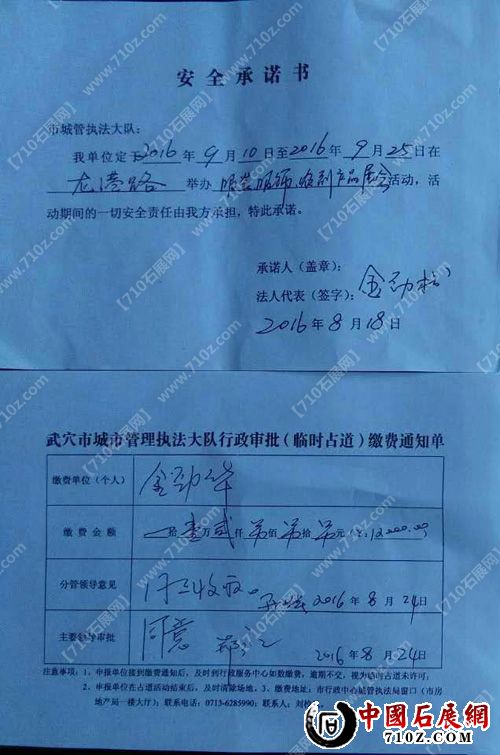 安全承诺书
市城管执法大队:
我单位定于2016年9月10日至2016年9月25日在
龙港路 举办 服装服饰、 产品展会活动,活
动期间的一切安全责任由我方承担,特此承诺。
承诺人(盖章):
法人代表(签字):金劲松
2016年8月18日
武穴市城市管理执法大队行政审批(临时占道)缴费通知单
缴费单位(个人) 金劲
缴费金额 拾壹万贰仟 佰 拾 元(¥:12000.00)
分管领导意见 2016年8月24日
主要领导审批 同意 2016年8月24日
注意事项:1、申报单位接到缴费通知后,及时到行政服务中心如数缴费,逾期不交,视为临时占道未许可;
2、申报单位在占道活动结束后,及时清除场地。3、缴费地址:市行政中心城管执法局窗口(市房
地产局一楼大厅);联系电话:0713-6285990;联系人:刘
【710石展网】www.710z.com
中國石展网
710Z.COM